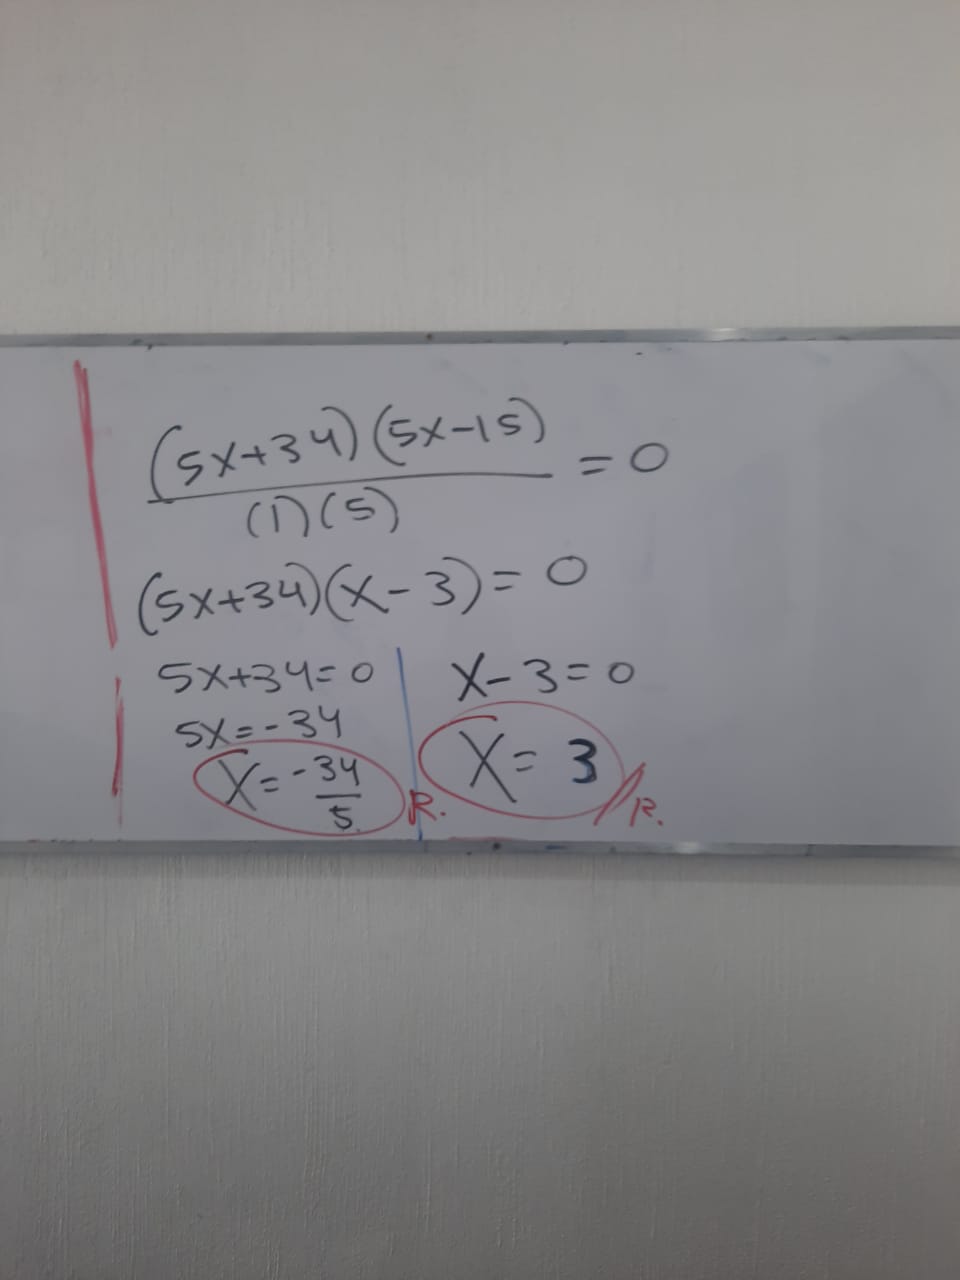 (5x+34)(5x-15)
(1)(5)
= 0
(5x+34)(x-3)= 0
5x+34=0
5x=-34
x=-34
5
R.
x-3=0
x= 3
R.